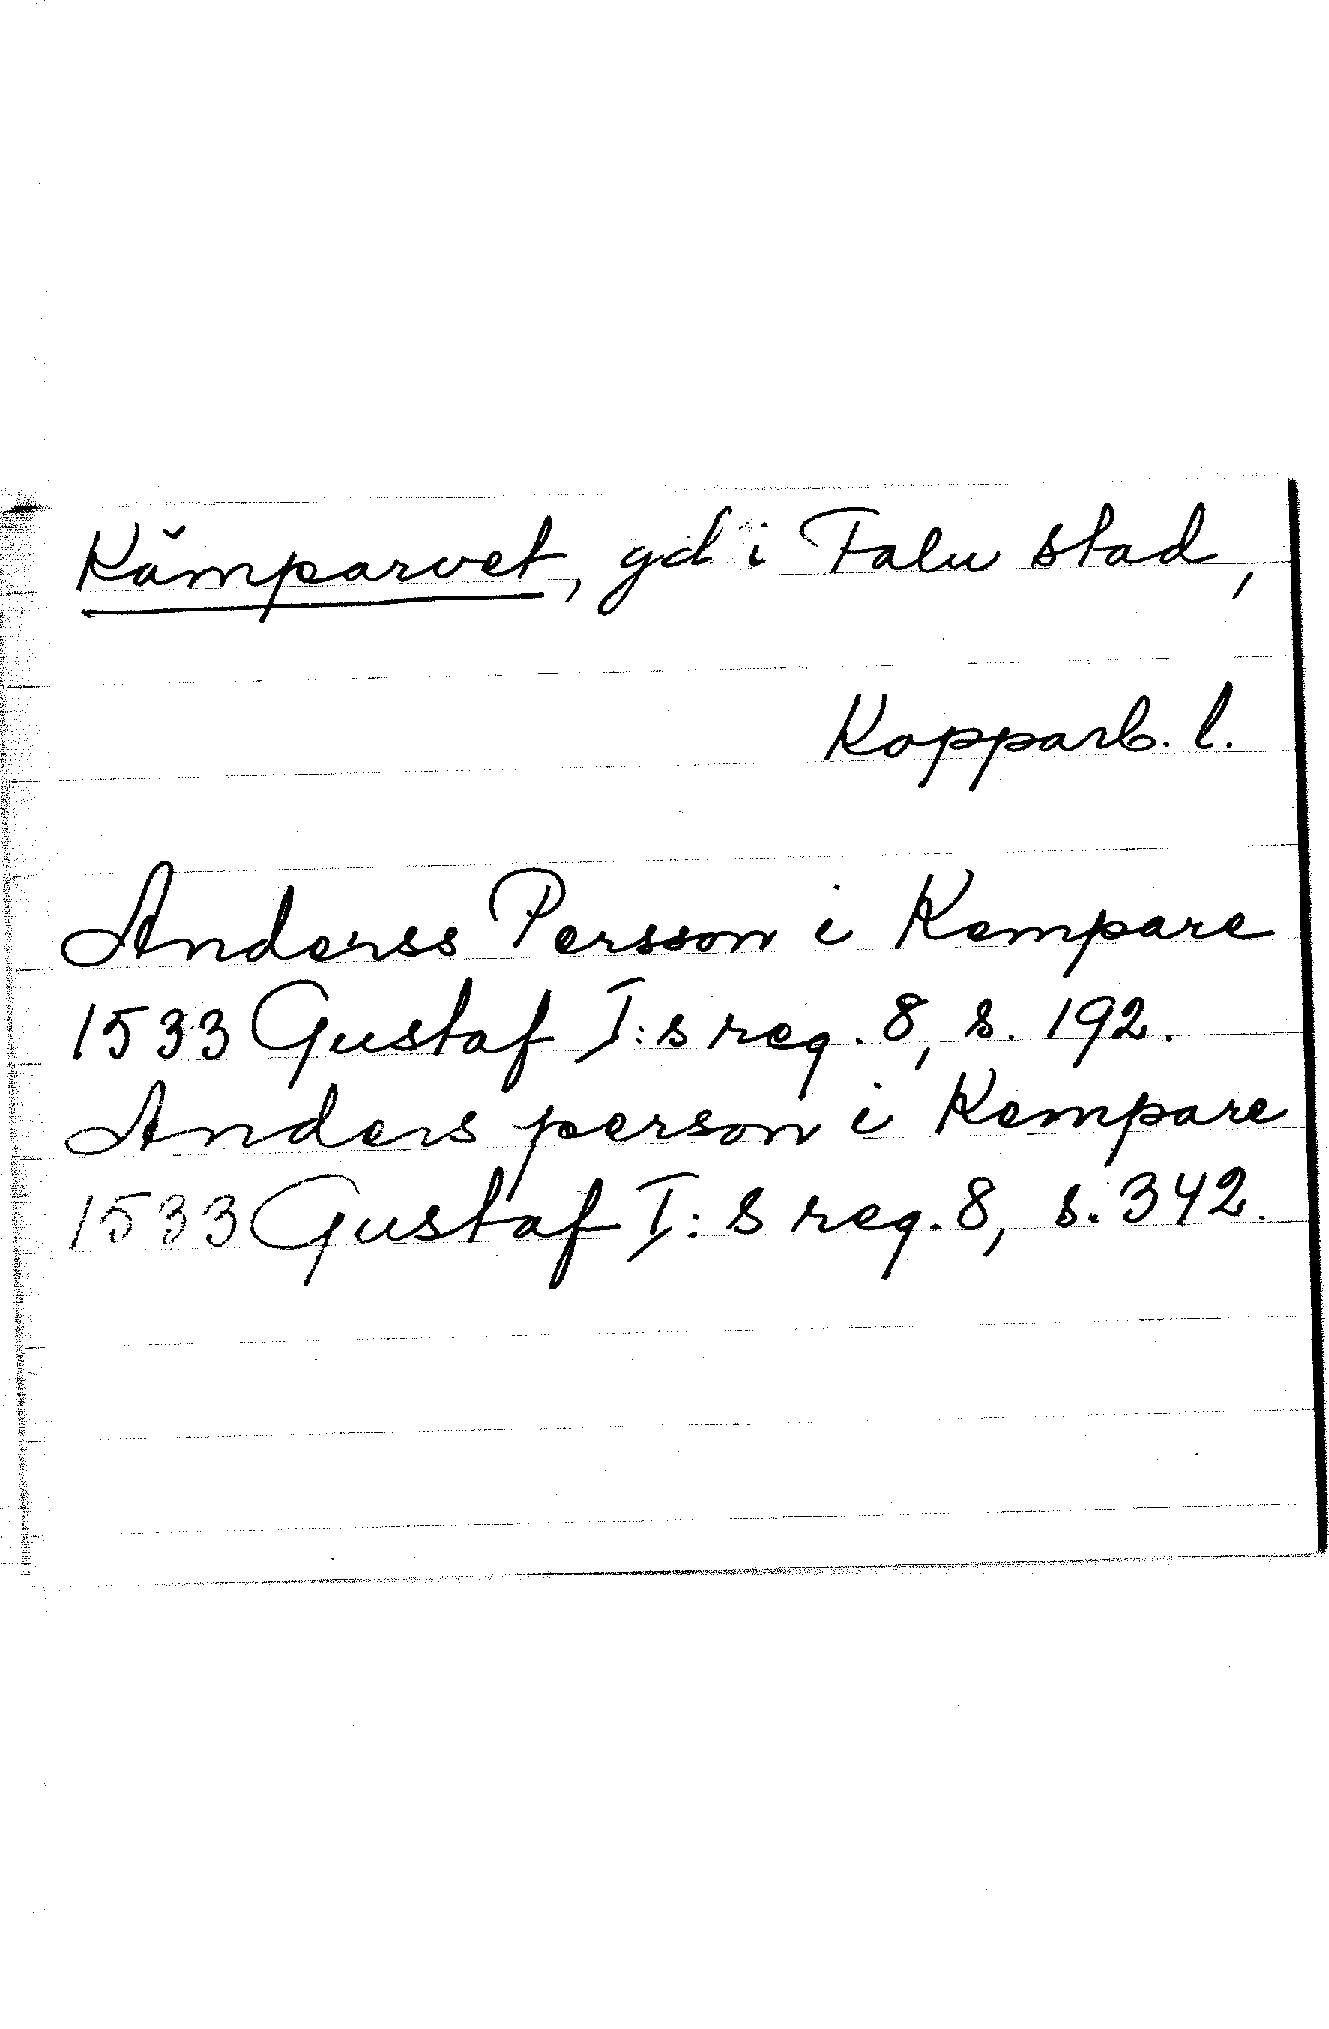 Kämparvet, gd i Falu stad,
Kopparb. l.
Anderss Persson i Kempare
1533 Gustaf I:s reg. 8, s. 192.
Anders person i Kempare
1533 Gustaf I:s reg. 8, s. 342.